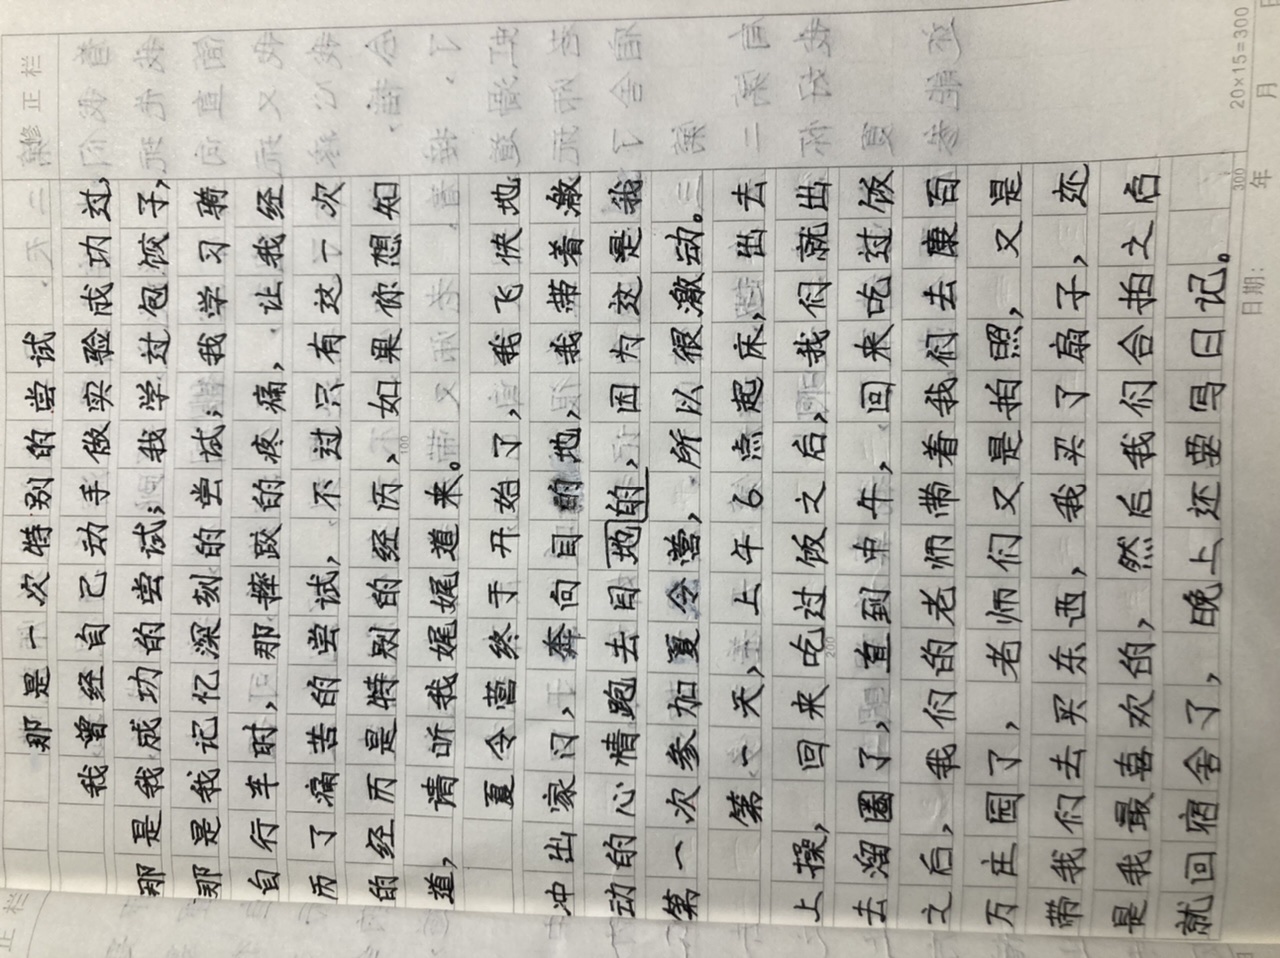 那是一次特别的尝试
我曾经自己动手做实验成功过,
那是我成功的尝试;我学过包饺子,
那是我记忆深刻的尝试;我学习骑
自行车时,那摔跤的疼痛,让我经
历了痛苦的尝试,不过只有这一次
的经历是特别的经历、如果你想知
道,请听我娓娓道来。
夏令营终于开始了,我飞快地
冲出家门,奔向目的地,我带着激
动的心情跑去目地的、因为这是我
第一次参加夏令营,所以很激动。
第一天、上午6点起床,出去
上操,回来吃过饭之后,我们就出
去溜圈了,直到中午,回来吃过饭
之后,我们的老师带着我们去康百
万庄园了,老师们又是拍照,又是
带我们去买东西,我买了扇子,还
是我最喜欢的,然后我们合拍之后
就回宿舍了,晚上还要写日记。
修正栏
20×15=300
日期:
年
月
100
200
300
正栏